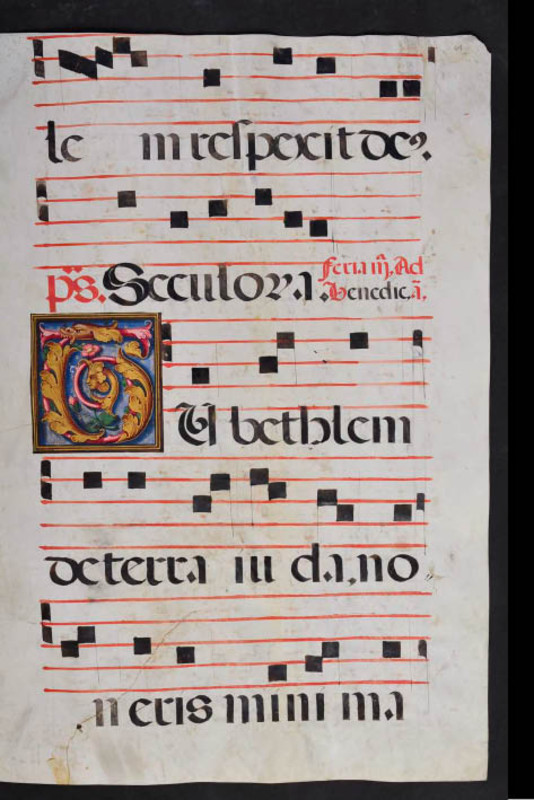 le m respexit de9.
ps. Seculora. feria iij. Ad
Benedic. ā.
TU bethlem
de terra iu da, no
n eris mini ma